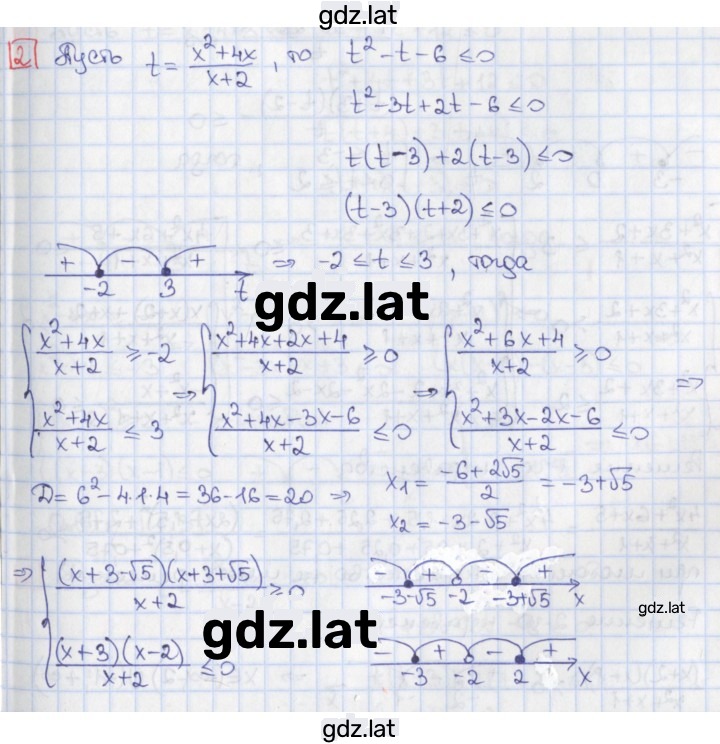 gdz.lat
2 Пусть t = (x²+4x)/(x+2), то t² - t - 6 ≤ 0
t² - 3t + 2t - 6 ≤ 0
t(t-3) + 2(t-3) ≤ 0
(t-3)(t+2) ≤ 0
+ - + ⇒ -2 ≤ t ≤ 3, тогда
-2 3 t
gdz.lat
{ (x²+4x)/(x+2) ≥ -2 ⇒ { (x²+4x+2x+4)/(x+2) ≥ 0 ⇒ { (x²+6x+4)/(x+2) ≥ 0 ⇒
(x²+4x)/(x+2) ≤ 3 (x²+4x-3x-6)/(x+2) ≤ 0 (x²+3x-2x-6)/(x+2) ≤ 0
D = 6² - 4·1·4 = 36 - 16 = 20 ⇒ x₁ = (-6+2√5)/2 = -3+√5
x₂ = -3-√5
⇒ { ((x+3-√5)(x+3+√5))/(x+2) ≥ 0 - + - +
-3-√5 -2 -3+√5 x
gdz.lat
gdz.lat
((x+3)(x-2))/(x+2) ≤ 0 - + - +
-3 -2 2 x
gdz.lat